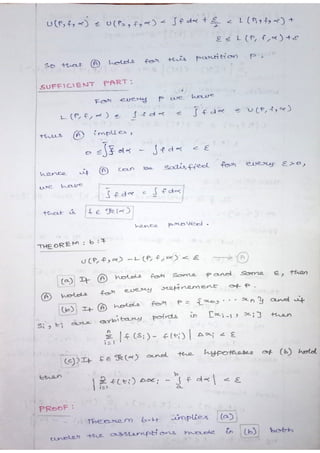 U(P,f,α) ≤ U(P₂,f,α) < ∫f dα + ε/2 < L(P₁,f,α) +
ε ≤ L(P,f,α)+ε
So that Ⓐ holds for this partition P.
SUFFICIENT PART:
For every P we have
L(P,f,α) ≤ ∫f dα ≤ ∫f dα ≤ U(P,f,α)
thus Ⓐ implies,
0 ≤ ∫f dα - ∫f dα < ε
hence if Ⓐ can be satisfied for every ε>0,
we have
∫f dα = ∫f dα
that is f ∈ R(α)
hence proved.
THEOREM: 6.7
U(P,f,α) - L(P,f,α) < ε → Ⓐ
(a) If Ⓐ holds for some P and some ε, then
Ⓐ holds for every refinement of P.
(b) If Ⓐ holds for P = {x₀, ... xₙ} and if
Si, ti are arbitary points in [xi-1, xi] then
n
Σ |f(Si) - f(ti)| Δαi < ε
i=1
(c) If f ∈ R(α) and the hypotheses of (b) hold
then
|Σ f(ti) Δαi - ∫ f dα| < ε
PROOF:
Theorem 6.4 implies (a)
under the assumptions made in (b) both